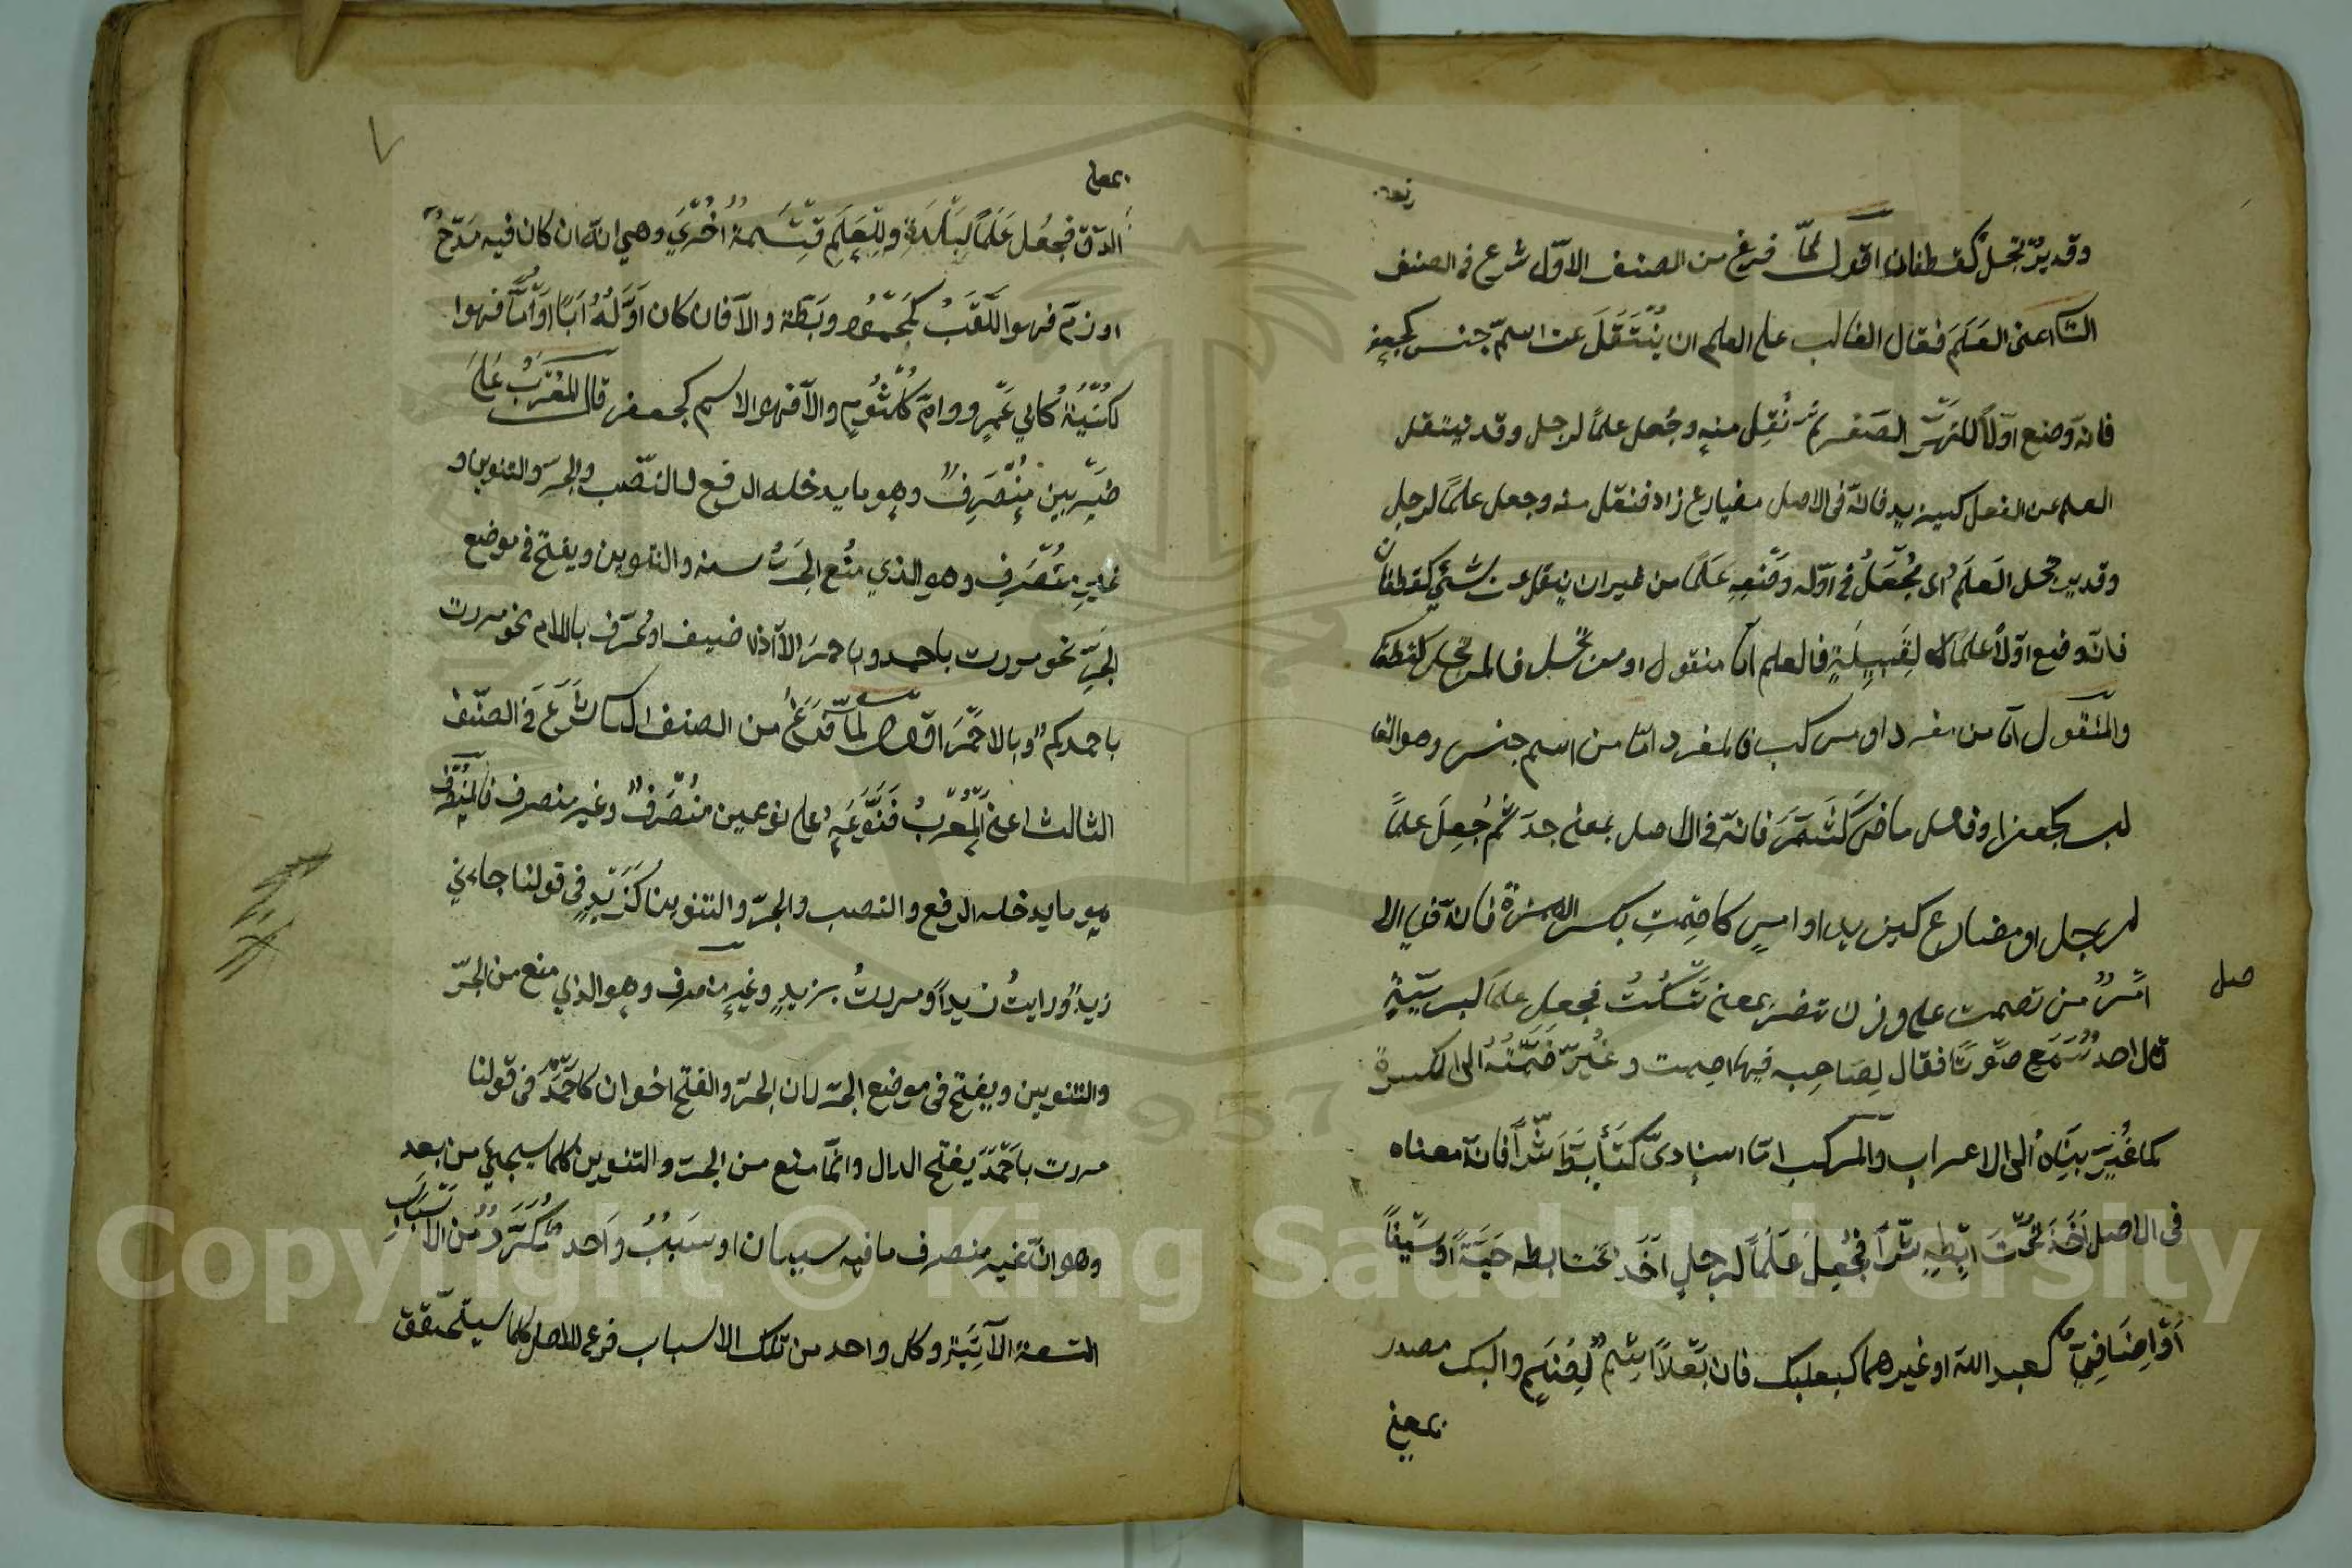 وقد يرتجل كغطفان اقول لما فرغ من الصنف الاول شرع فى الصنف
الثانى اعنى العَلَمَ فقال الغالب على العلم ان يُنْتَقَلَ عن اسم جنس كجعفر
فانه وضع اوّلاً للنهر الصغير ثم نُقِل منه وجُعل علماً لرجل وقد ينتقل
العلم عن الفعل كيزيد فانه فى الاصل مضارع زاد فنقل منه وجعل علماً لرجل
وقد يرتجل العَلَم اى يُجْعَلُ فى اوّله وضعه عَلَماً من غير ان ينقل عن شئ كغطفان
فانه وضع اوّلاً علماً لِقَبِيلَةٍ فالعلم امّا منقول او مرتجل فالمرتجل كغطفان
والمنقول امّا من مفرد او مركب فالمفرد امّا من اسم جنس وهو الغا
لب كجعفر او فعل ماض كَشَمَّرَ فانه فى الاصل بمعنى جدّ ثُمّ جُعِلَ علماً
لرجل او مضارع كيزيد او امرٍ كاصْمِتِ بكسر الهمزة فانه فى الا
صل
امرٌ من تصمت على وزن تنصر بمعنى تَسْكُتُ فجعل علماً لبريّةٍ
قال احد سَمِع صَوْتًا فقال لِصَاحِبِه فيها اصمت وغُيِّرَ ضَمَّتُهُ الى الكسرة
كما غُيِّرَ بِنَاه الى الاعراب والمركب امّا اسنادىّ كَتَأَبَّطَ شَرّاً فانه معناه
فى الاصل اَخَذَ تَحْتَ اِبْطِهِ شَرّاً فجُعِلَ عَلَماً لرجلٍ اَخَذَ تحت ابطه حَيَّةً او سَيْفاً
اَوْ اِضَافِىّ كعبد الله او غيرهما كبعلبك فان بَعْلاً اسْمٌ لِصَنَمٍ والبك مصدر
بمعنى
بمعنى
الدقّ فجُعل عَلَماً لِبَلْدَةٍ ولِلْعَلَمِ قِسْمَةٌ اُخْرَى وهى انّه ان كان فيه مَدْحٌ
او ذمّ فهو اللَّقَبُ كَمحمود وبَطَّة والّا فان كان اَوَّلُهُ اَبًا اَوْ اُمًّا فهوا
لكُنْيَةُ كابي عَمْرٍو وامّ كُلْثُومٍ والّا فهو الاسم كجعفر قال المُعْرَبُ عَلَى
ضَرْبَين مُنْصَرِفٌ وهو ما يدخله الرفع والنّصب والجرّ والتنوين و
غيرِ مُنْصَرِفٍ وهو الذي مُنع الجَرُّ منه والتنوين ويفتح فى موضع
الجرّ نحو مررت باحمد وباحمر الّا اذا ضيف او عُرّف باللام نحو مررت
باحمدكم وبالاحمر اقول لمّا فَرَغَ من الصنف الثانى شَرَعَ فى الصنف
الثالث اعنى المُعْرَبُ فَنَوَّعَهُ على نوعين مُنْصَرِفٌ وغير منصرف فالمنصرف
هو ما يدخله الرفع والنصب والجرّ والتنوين كَزَيْدٍ فى قولنا جاءنى
زيدٌ ورايتُ زيداً ومررتُ بزيدٍ وغير منصرف وهو الذي منع من الجرّ
والتنوين ويفتح فى موضع الجرّ لان الجرّ والفتح اخوان كاَحْمَدَ فى قولنا
مررت باَحْمَدَ يفتح الدال وانّما منع من الجرّ والتنوين لما سيجئ من بعد
وهو انّ غير منصرف ما فيه سببان او سَبَبٌ واحد مُكَرَّرٌ من الاَسْبَابِ
التسعة الآتِيَةِ وكل واحد من تلك الاسباب فرع للاصل كما سيتحقق